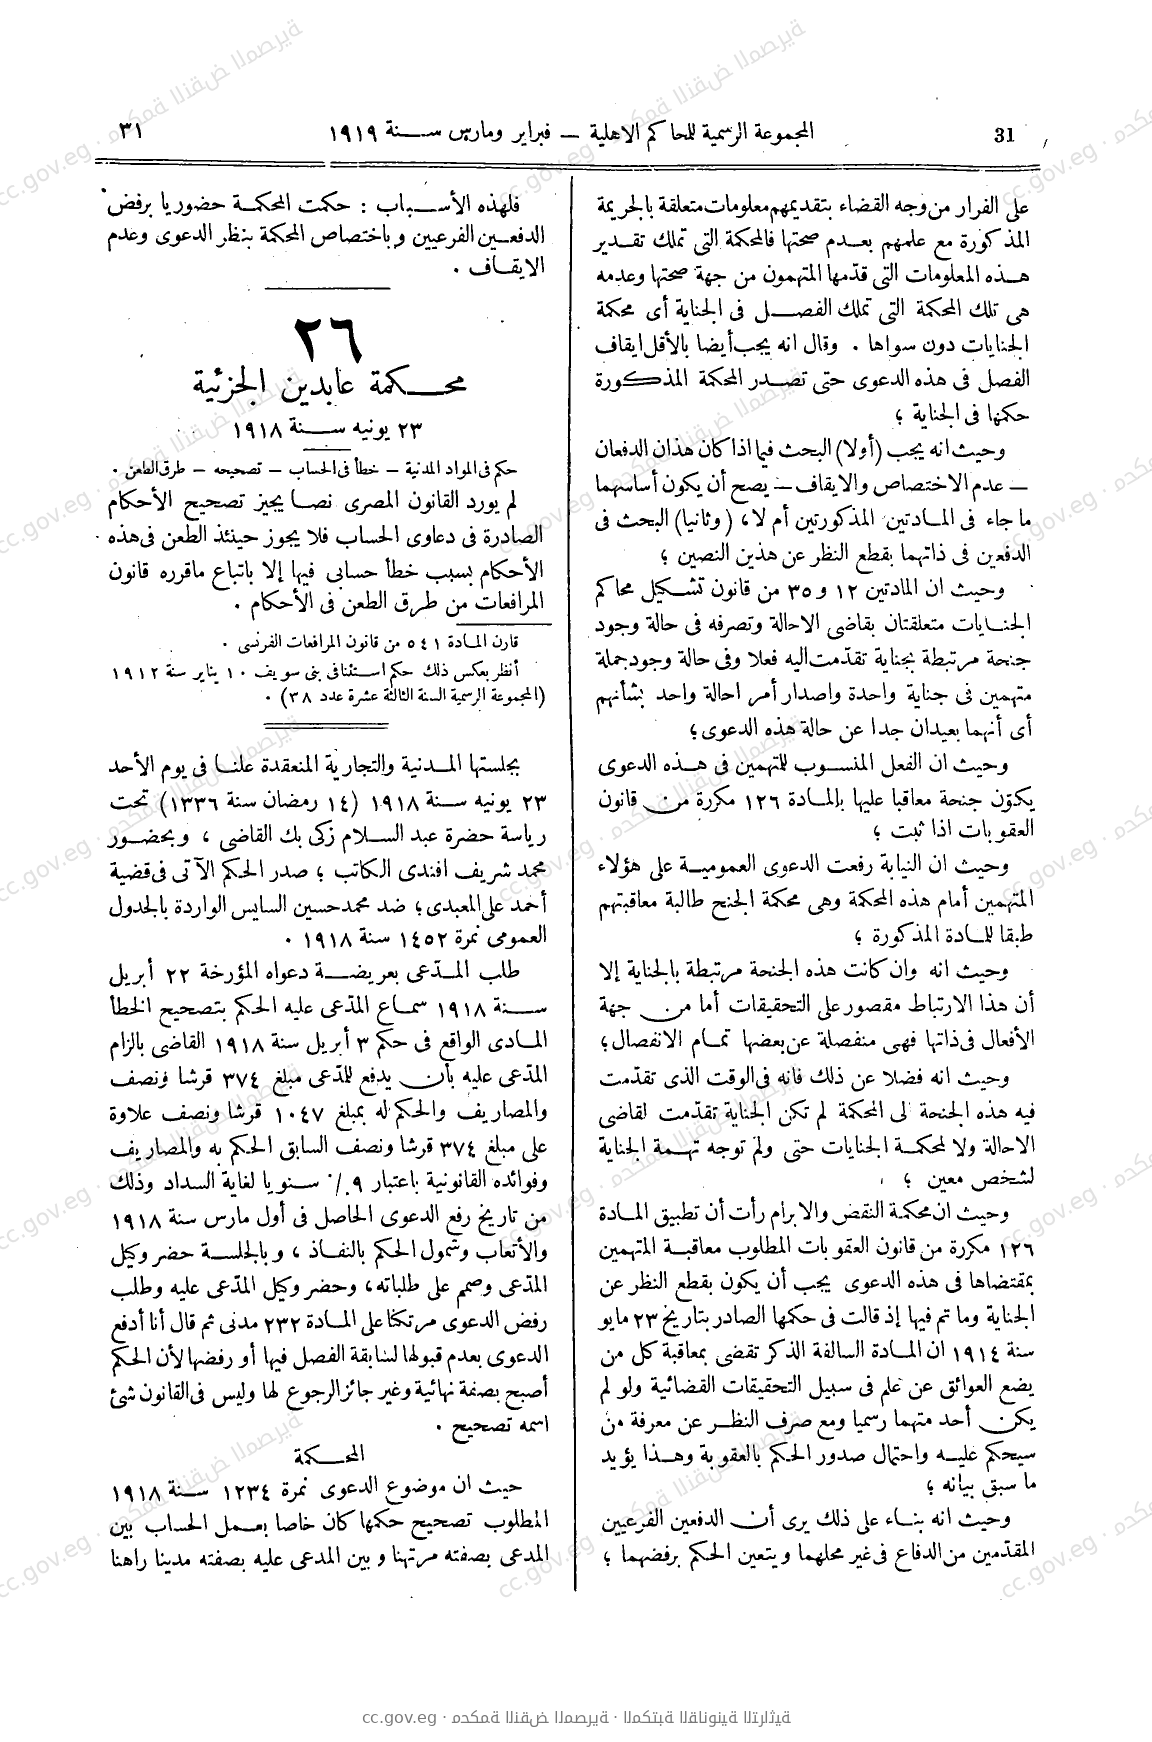 31
المجموعة الرسمية للمحاكم الاهلية — فبراير ومارس سنة ١٩١٩
٣١
على الفرار من وجه القضاء بتقديمهم معلومات متعلقة بالجريمة
المذكورة مع علمهم بعدم صحتها فالمحكمة التى تملك تقدير
هذه المعلومات التى قدّمها المتهمون من جهة صحتها وعدمه
هى تلك المحكمة التى تملك الفصل فى الجناية أى محكمة
الجنايات دون سواها ٠ وقال انه يجب أيضا بالأقل ايقاف
الفصل فى هذه الدعوى حتى تصدر المحكمة المذكورة
حكمها فى الجناية ؛
وحيث انه يجب (أولا) البحث فيما اذا كان هذان الدفعان
— عدم الاختصاص والايقاف — يصح أن يكون أساسهما
ما جاء فى المادتين المذكورتين أم لا، (وثانيا) البحث فى
الدفعين فى ذاتهما بقطع النظر عن هذين النصين ؛
وحيث ان المادتين ١٢ و ٣٥ من قانون تشكيل محاكم
الجنايات متعلقتان بقاضى الاحالة وتصرفه فى حالة وجود
جنحة مرتبطة بجناية تقدّمت اليه فعلا وفى حالة وجود جملة
متهمين فى جناية واحدة واصدار أمر احالة واحد بشأنهم
أى أنهما بعيدان جدا عن حالة هذه الدعوى؛
وحيث ان الفعل المنسوب للمتهمين فى هذه الدعوى
يكوّن جنحة معاقبا عليها بالمادة ١٢٦ مكررة من قانون
العقوبات اذا ثبت ؛
وحيث ان النيابة رفعت الدعوى العمومية على هؤلاء
المتهمين أمام هذه المحكمة وهى محكمة الجنح طالبة معاقبتهم
طبقا للمادة المذكورة ؛
وحيث انه وان كانت هذه الجنحة مرتبطة بالجناية إلا
أن هذا الارتباط مقصور على التحقيقات أما من جهة
الأفعال فى ذاتها فهى منفصلة عن بعضها تمام الانفصال؛
وحيث انه فضلا عن ذلك فانه فى الوقت الذى تقدّمت
فيه هذه الجنحة الى المحكمة لم تكن الجناية تقدّمت لقاضى
الاحالة ولا لمحكمة الجنايات حتى ولم توجه تهمة الجناية
لشخص معين ؛
وحيث ان محكمة النقض والابرام رأت أن تطبيق المادة
١٢٦ مكررة من قانون العقوبات المطلوب معاقبة المتهمين
بمقتضاها فى هذه الدعوى يجب أن يكون بقطع النظر عن
الجناية وما تم فيها إذ قالت فى حكمها الصادر بتاريخ ٢٣ مايو
سنة ١٩١٤ ان المادة السالفة الذكر تقضى بمعاقبة كل من
يضع العوائق عن علم فى سبيل التحقيقات القضائية ولو لم
يكن أحد متهما رسميا ومع صرف النظر عن معرفة من
سيحكم عليه واحتمال صدور الحكم بالعقوبة وهذا يؤيد
ما سبق بيانه ؛
وحيث انه بناء على ذلك يرى أن الدفعين الفرعيين
المقدّمين من الدفاع فى غير محلهما ويتعين الحكم برفضهما ؛
فلهذه الأسباب : حكمت المحكمة حضوريا برفض
الدفعين الفرعيين وباختصاص المحكمة بنظر الدعوى وعدم
الايقاف ٠
٢٦
محكمة عابدين الجزئية
٢٣ يونيه سنة ١٩١٨
حكم فى المواد المدنية — خطأ فى الحساب — تصحيحه — طرق الطعن ٠
لم يورد القانون المصرى نصا يجيز تصحيح الأحكام
الصادرة فى دعاوى الحساب فلا يجوز حينئذ الطعن فى هذه
الأحكام بسبب خطأ حسابى فيها إلا باتباع ماقرره قانون
المرافعات من طرق الطعن فى الأحكام ٠
قارن المادة ٥٤١ من قانون المرافعات الفرنسى ٠
أنظر بعكس ذلك حكم استئنافى بنى سويف ١٠ يناير سنة ١٩١٢
(المجموعة الرسمية السنة الثالثة عشرة عدد ٣٨) ٠
بجلستها المدنية والتجارية المنعقدة علنا فى يوم الأحد
٢٣ يونيه سنة ١٩١٨ (١٤ رمضان سنة ١٣٣٦) تحت
رياسة حضرة عبد السلام زكى بك القاضى ، وبحضور
محمد شريف افندى الكاتب ؛ صدر الحكم الآتى فى قضية
أحمد على المعبدى؛ ضد محمد حسين السايس الواردة بالجدول
العمومى نمرة ١٤٥٢ سنة ١٩١٨ ٠
طلب المدّعى بعريضة دعواه المؤرخة ٢٢ أبريل
سنة ١٩١٨ سماع المدّعى عليه الحكم بتصحيح الخطأ
المادى الواقع فى حكم ٣ أبريل سنة ١٩١٨ القاضى بالزام
المدّعى عليه بأن يدفع للمدّعى مبلغ ٣٧٤ قرشا ونصف
والمصاريف والحكم له بمبلغ ١٠٤٧ قرشا ونصف علاوة
على مبلغ ٣٧٤ قرشا ونصف السابق الحكم به والمصاريف
وفوائده القانونية باعتبار ٩ ٪ سنويا لغاية السداد وذلك
من تاريخ رفع الدعوى الحاصل فى أول مارس سنة ١٩١٨
والأتعاب وشمول الحكم بالنفاذ ، وبالجلسة حضر وكيل
المدّعى وصمم على طلباته، وحضر وكيل المدّعى عليه وطلب
رفض الدعوى مرتكنا على المادة ٢٣٢ مدنى ثم قال أنا أدفع
الدعوى بعدم قبولها لسابقة الفصل فيها أو رفضها لأن الحكم
أصبح بصفة نهائية وغير جائز الرجوع لها وليس فى القانون شئ
اسمه تصحيح ٠
المحكمة
حيث ان موضوع الدعوى نمرة ١٢٣٤ سنة ١٩١٨
المطلوب تصحيح حكمها كان خاصا بعمل الحساب بين
المدعى بصفته مرتهنا وبين المدعى عليه بصفته مدينا راهنا
cc.gov.eg · محكمة النقض المصرية · المكتبة القانونية التراثية